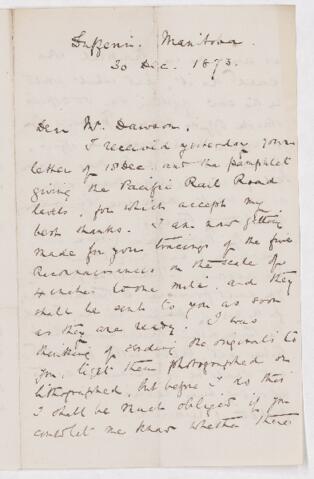 Dufferin. Manitoba.
30 Dec. 1873.
Dear Mr. Dawson,
I received yesterday your
letter of 18 Dec. and the pamphlet
giving the Pacific Rail Road
levels, for which accept my
best thanks. I am now getting
made for you tracings of the five
Reconnaissances on the scale of
4 inches to one mile, and they
shall be sent to you as soon
as they are ready. I was
thinking of sending the originals to
you, to get them photographed or
lithographed, but before I do this
I shall be much obliged if you
could let me know whether there